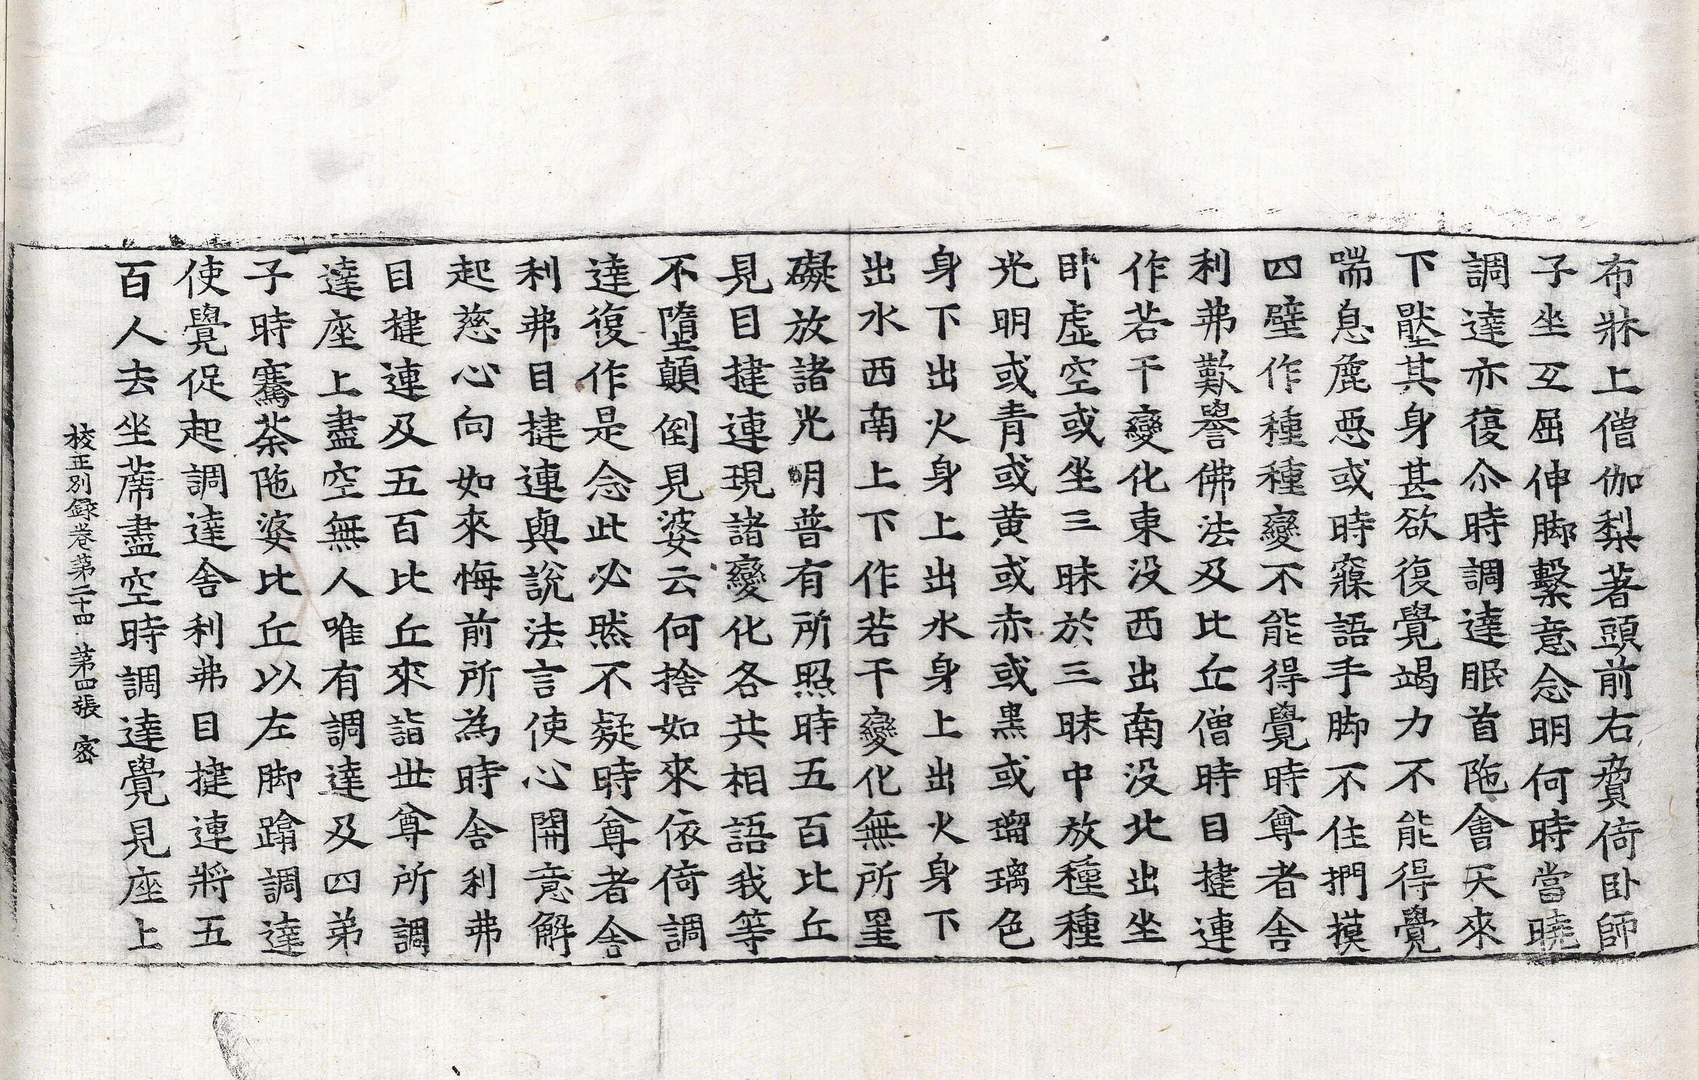 布牀上僧伽梨著頭前右脅倚臥師
子坐互屈伸脚繫意念明何時當曉
調達亦復尒時調達眠首陁會天來
下壓其身甚欲復覺竭力不能得覺
喘息麁惡或時寱語手脚不住捫摸
四壁作種種變不能得覺時尊者舎
利弗歎譽佛法及比丘僧時目揵連
作若干變化東没西出南没北出坐
卧虛空或坐三昧於三昧中放種種
光明或青或黄或赤或黒或瑠璃色
身下出火身上出水身上出火身下
出水西南上下作若干變化無所罣
礙放諸光明普有所照時五百比丘
見目揵連現諸變化各共相語我等
不墮顛倒見婆云何捨如來依倚調
達復作是念此必然不疑時尊者舎
利弗目揵連與說法言使心開意解
起慈心向如來悔前所為時舎利弗
目揵連及五百比丘來詣世尊所調
達座上盡空無人唯有調達及四弟
子時騫荼陁婆比丘以左脚蹋調達
使覺促起調達舎利弗目揵連將五
百人去坐蓆盡空時調達覺見座上
校正別録卷第二十四 第四張 宻